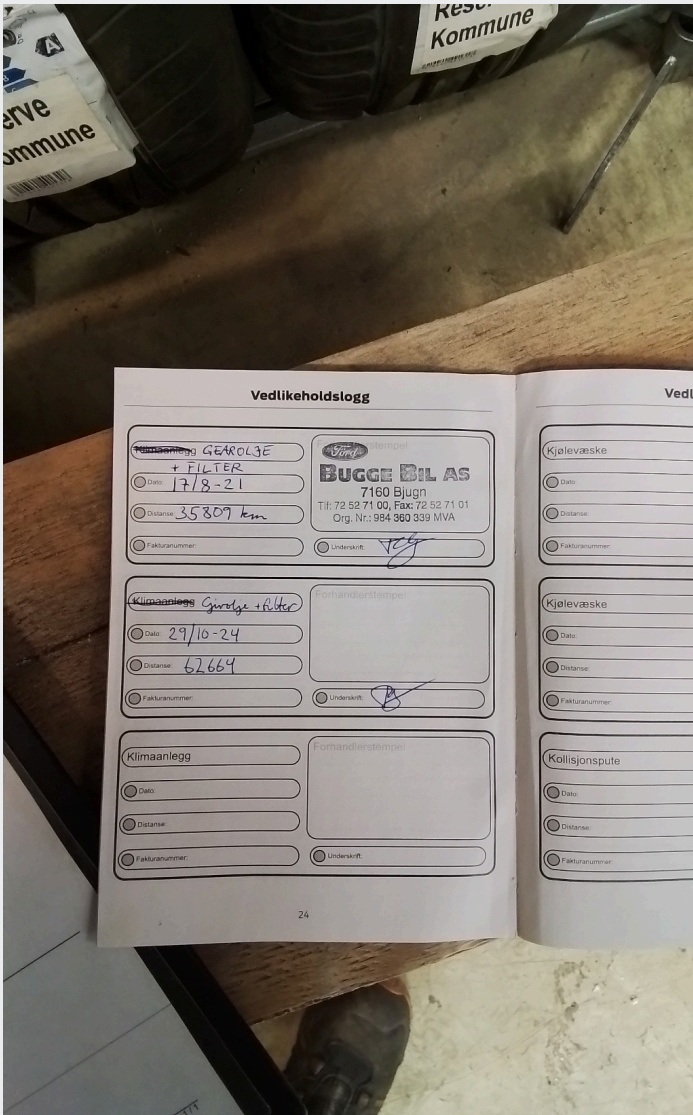 Rese
Kommune
erve
ommune
Vedlikeholdslogg
Klimaanlegg GEAROLJE
+ FILTER
Dato: 17/8-21
Distanse: 35809 km
Fakturanummer:
Forhandlerstempel
Ford
BUGGE BIL AS
7160 Bjugn
Tlf: 72 52 71 00, Fax: 72 52 71 01
Org. Nr.: 984 360 339 MVA
Underskrift:
Klimaanlegg Girolje + filter
Dato: 29/10-24
Distanse: 62664
Fakturanummer:
Forhandlerstempel
Underskrift:
Klimaanlegg
Dato:
Distanse:
Fakturanummer:
Forhandlerstempel
Underskrift:
24
Vedl
Kjølevæske
Dato:
Distanse:
Fakturanummer:
Kjølevæske
Dato:
Distanse:
Fakturanummer:
Kollisjonspute
Dato:
Distanse:
Fakturanummer: